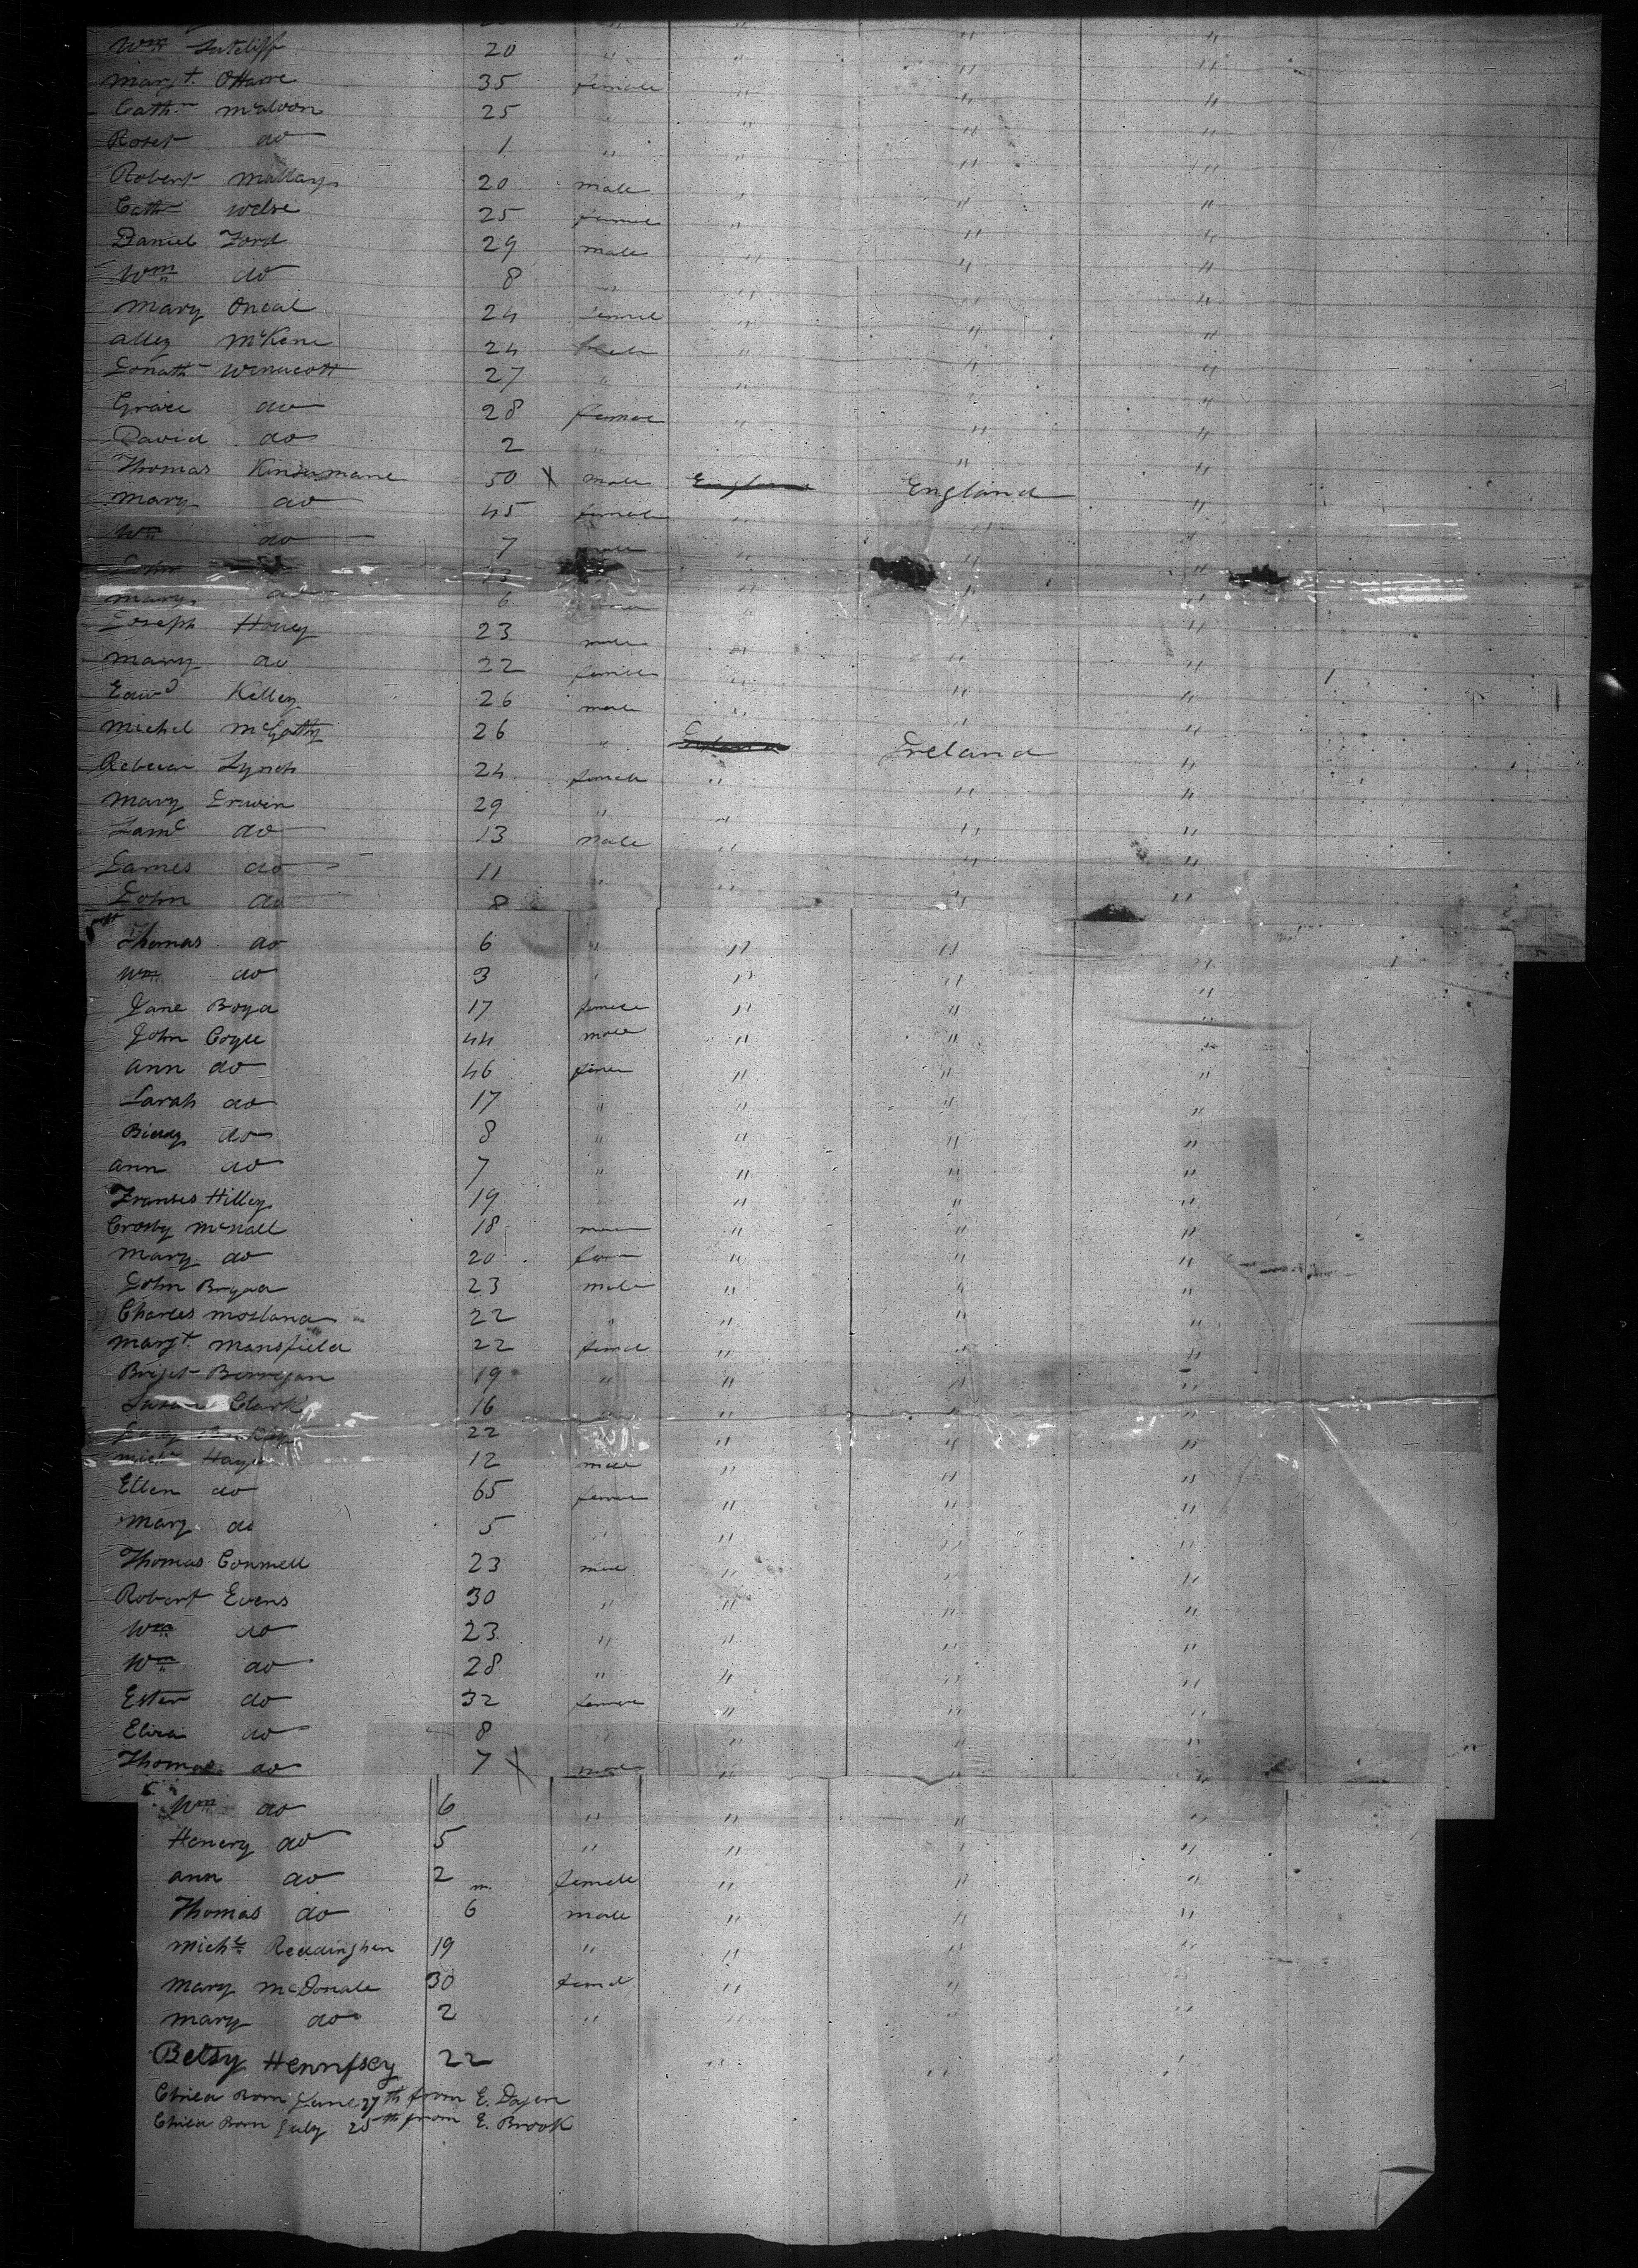 Wm Sutcliff 20 " " " "
Margt. OHare 35 female " " "
Cath. McAloon 25 " " " "
Roset do 1 " " " "
Robert Mallay 20 male " " "
Cath Welse 25 female " " "
Daniel Ford 29 male " " "
Wm do 8 " " " "
Mary Oneal 24 femel " " "
Alley McKene 24 " " "
Jonath Winnecott 27 " " " "
Grace do 28 female " " "
David do 2 " " " "
Thomas Kinsemane 50 X male England England "
Mary do 45 female " " "
Wm do 7 male " " "
John do 13 " "
Mary do 6 " " "
Joseph Honey 23 male " " "
Mary do 22 female " " "
Edwd Kelley 26 male " " "
Michel McGathy 26 " Ireland "
Rebecca Lynch 24 female " " "
Mary Erwin 29 " " " "
Saml do 13 male " " "
James do 11 " " " "
John do 8 " "
Thomas do 6 " " " "
Wm do 3 " " " "
Jane Boyd 17 female " " "
John Coyle 44 male " " "
Ann do 46 femel " " "
Sarah do 17 " " " "
Biddy do 8 " " " "
Ann do 7 " " " "
Franses Hilley 19 " " "
Crosby McNall 18 male " " "
Mary do 20 fem " " "
John Bryan 23 male " " "
Charles Mosland 22 " " " "
Margt. Mansfield 22 femel " " "
Briget Berrigan 19 " " " "
Susan Clark 16 " " " "
22 " " "
Mich Hays 12 male " " "
Ellen do 65 female " " "
Mary do 5 " " " "
Thomas Conmell 23 male " " "
Robert Evens 30 " " " "
Wm do 23 " " " "
Wm do 28 " " " "
Ester do 32 female " " "
Eliza do 8 " " "
Thomas do 7 X male " " "
Wm do 6 " " " "
Henery do 5 " " " "
Ann do 2 female " " "
Thomas do 6 m. male " " "
Michl Reddinghen 19 " " " "
Mary McDonale 30 femel " " "
Mary do 2 " " " "
Betsy Hennesey 22 " " "
Child Born June 27th from E. Dayen
Child Born July 25th from E. Brook